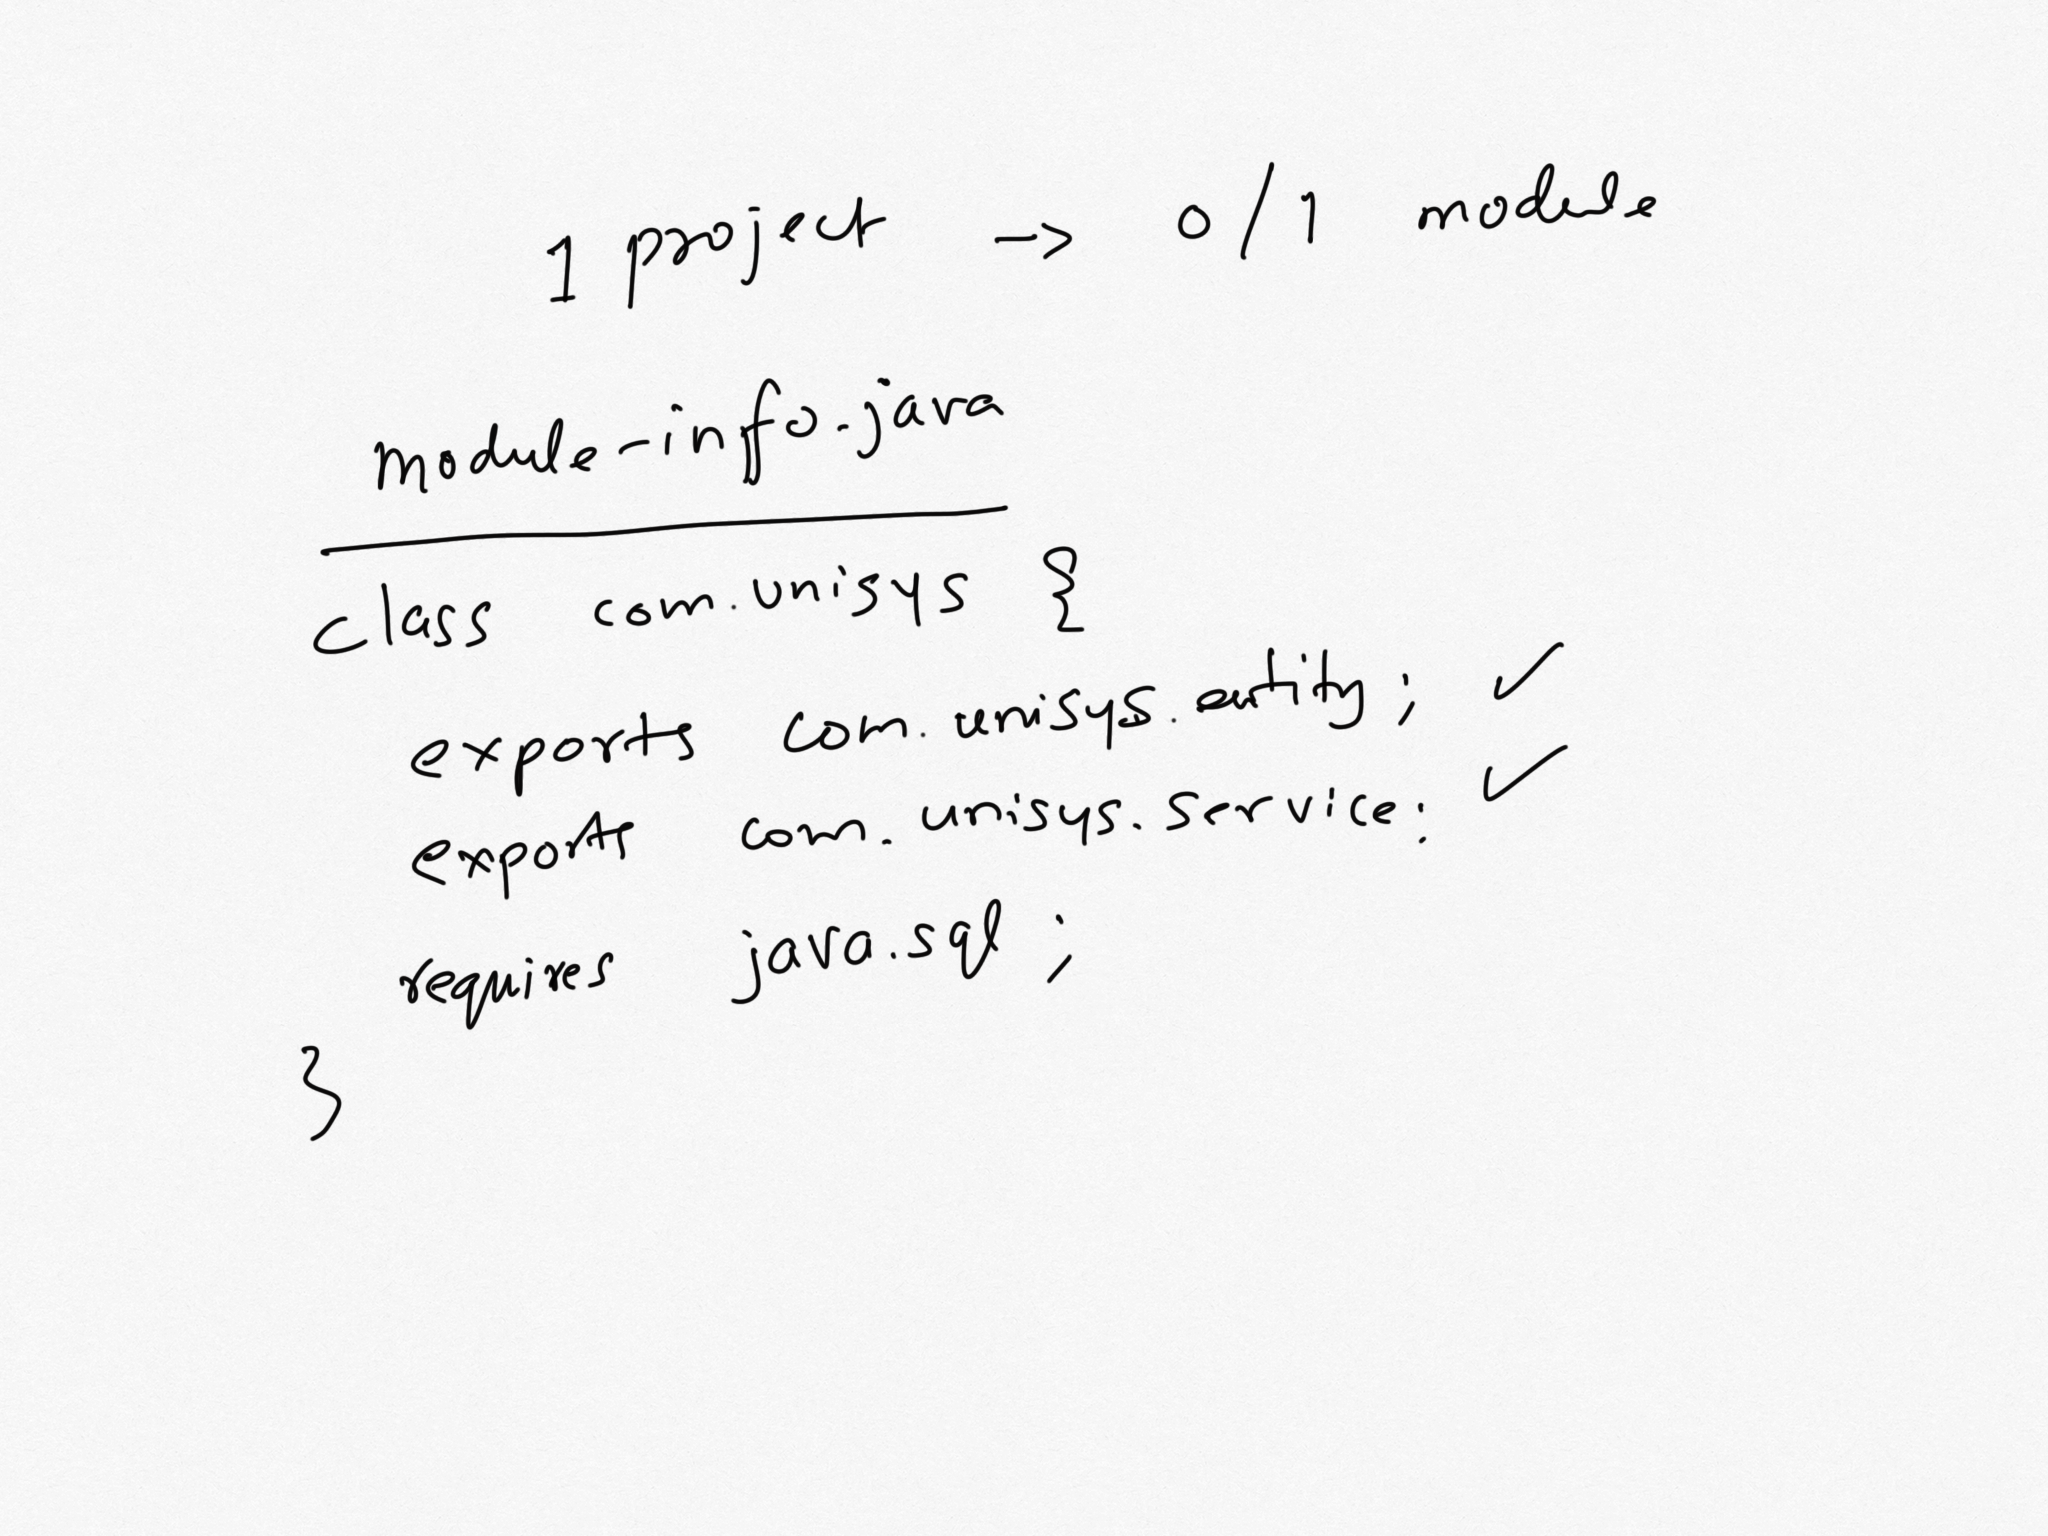 1 project -> 0/1 module
module-info.java
class com.unisys {
exports com.unisys.entity; ✓
exports com.unisys.service; ✓
requires java.sql;
}